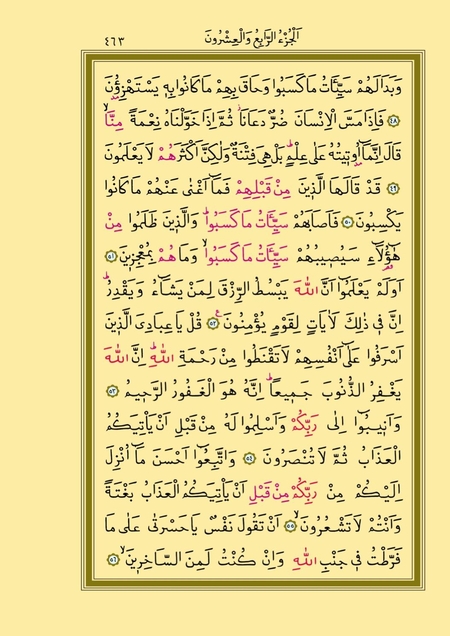 ٤٦٣ اَلْجُزْءُ الرَّابِعُ وَالْعِشْرُونَ
وَبَدَا لَهُمْ سَيِّئَاتُ مَا كَسَبُوا وَحَاقَ بِهِمْ مَا كَانُوا بِهِ يَسْتَهْزِؤُنَ
﴿٤٨﴾ فَاِذَا مَسَّ الْاِنْسَانَ ضُرٌّ دَعَانَاۘ ثُمَّ اِذَا خَوَّلْنَاهُ نِعْمَةً مِنَّاۙ
قَالَ اِنَّمَٓا اُو۫تِيتُهُ عَلٰى عِلْمٍۜ بَلْ هِيَ فِتْنَةٌ وَلٰكِنَّ اَكْثَرَهُمْ لَا يَعْلَمُونَ
﴿٤٩﴾ قَدْ قَالَهَا الَّذِينَ مِنْ قَبْلِهِمْ فَمَٓا اَغْنٰى عَنْهُمْ مَا كَانُوا
يَكْسِبُونَ ﴿٥٠﴾ فَاَصَابَهُمْ سَيِّئَاتُ مَا كَسَبُواۜ وَالَّذِينَ ظَلَمُوا مِنْ
هٰٓؤُ۬لَٓاءِ سَيُصِيبُهُمْ سَيِّئَاتُ مَا كَسَبُواۙ وَمَا هُمْ بِمُعْجِزِينَ ﴿٥١﴾
اَوَلَمْ يَعْلَمُٓوا اَنَّ اللّٰهَ يَبْسُطُ الرِّزْقَ لِمَنْ يَشَٓاءُ وَيَقْدِرُۜ
اِنَّ فِي ذٰلِكَ لَاٰيَاتٍ لِقَوْمٍ يُؤْمِنُونَ ﴿٥٢﴾ قُلْ يَا عِبَادِيَ الَّذِينَ
اَسْرَفُوا عَلٰٓى اَنْفُسِهِمْ لَا تَقْنَطُوا مِنْ رَحْمَةِ اللّٰهِۜ اِنَّ اللّٰهَ
يَغْفِرُ الذُّنُوبَ جَمِيعًاۜ اِنَّهُ هُوَ الْغَفُورُ الرَّحِيمُ ﴿٥٣﴾
وَاَنِيبُٓوا اِلٰى رَبِّكُمْ وَاَسْلِمُوا لَهُ مِنْ قَبْلِ اَنْ يَأْتِيَكُمُ
الْعَذَابُ ثُمَّ لَا تُنْصَرُونَ ﴿٥٤﴾ وَاتَّبِعُٓوا اَحْسَنَ مَٓا اُنْزِلَ
اِلَيْكُمْ مِنْ رَبِّكُمْ مِنْ قَبْلِ اَنْ يَأْتِيَكُمُ الْعَذَابُ بَغْتَةً
وَاَنْتُمْ لَا تَشْعُرُونَۙ ﴿٥٥﴾ اَنْ تَقُولَ نَفْسٌ يَا حَسْرَتٰى عَلٰى مَا
فَرَّطْتُ فِي جَنْبِ اللّٰهِ وَاِنْ كُنْتُ لَمِنَ السَّاخِرِينَۙ ﴿٥٦﴾